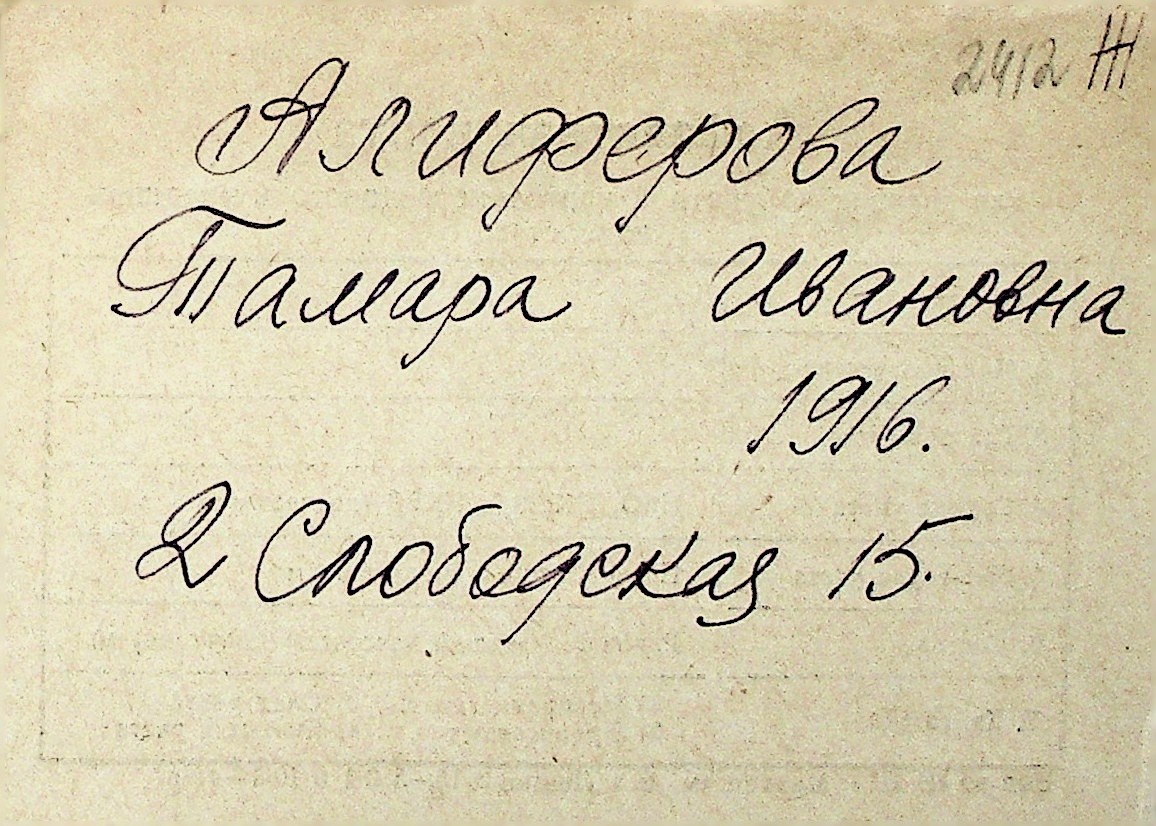 2412 Ж
Алиферова
Тамара Ивановна
1916.
2 Слободская 15.